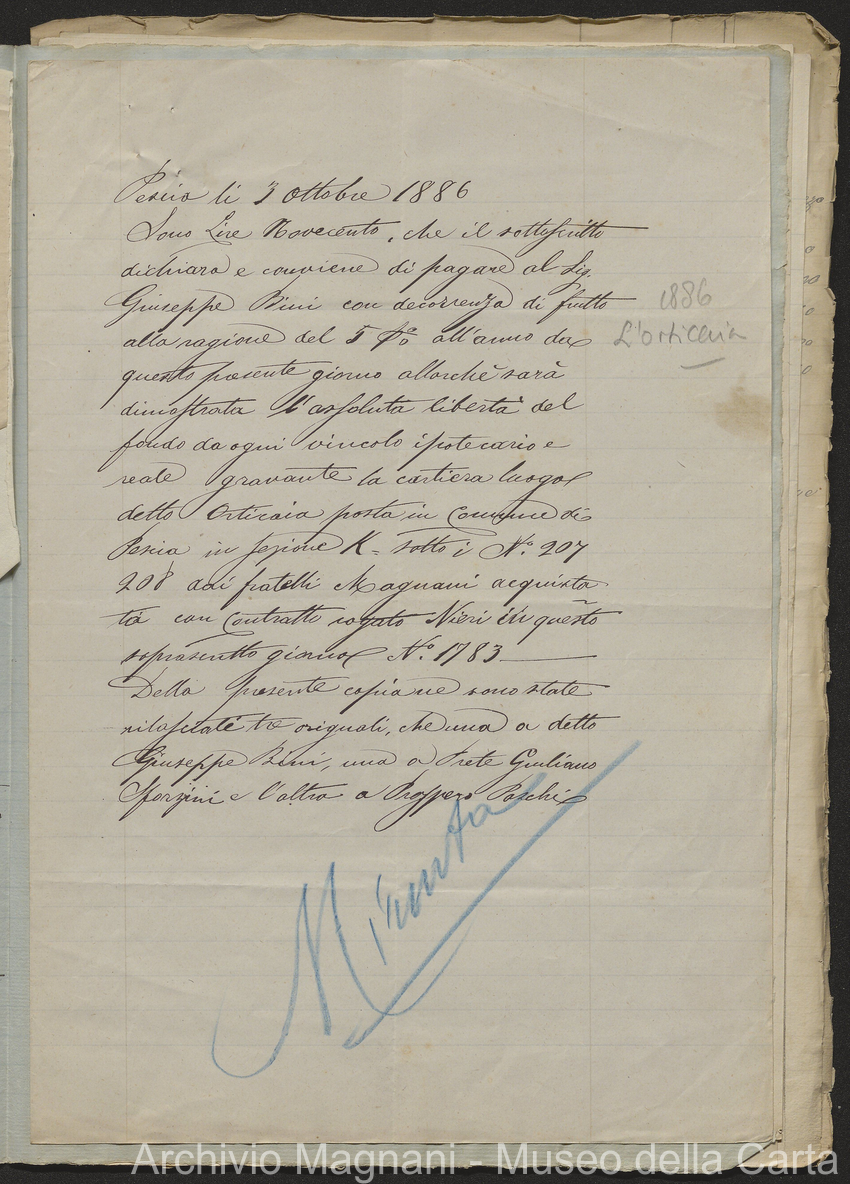 Pescia li 3 Ottobre 1886
Sono Lire Novecento, che il sottoscritto
dichiara e conviene di pagare al Sig.
Giuseppe Bini con decorrenza di frutto
alla ragione del 5 % all'anno da
questo presente giorno allorchè sarà
dimostrata l'assoluta libertà del
fondo da ogni vincolo ipotecario e
reale gravante la cartiera luogo
detto Orticaia posta in Comune di
Pescia in Sezione K = sotto i N.° 207
208 dai fratelli Magnani acquista
ta con Contratto rogato Nieri in questo
soprascritto giorno N.° 1783
Della presente copia ne sono state
rilasciate tre originali, che una a detto
Giuseppe Bini, una a Prete Giuliano
Sforzini e l'altra a Prospero Paschi
1886
L'orticaia
Minuta
Archivio Magnani - Museo della Carta